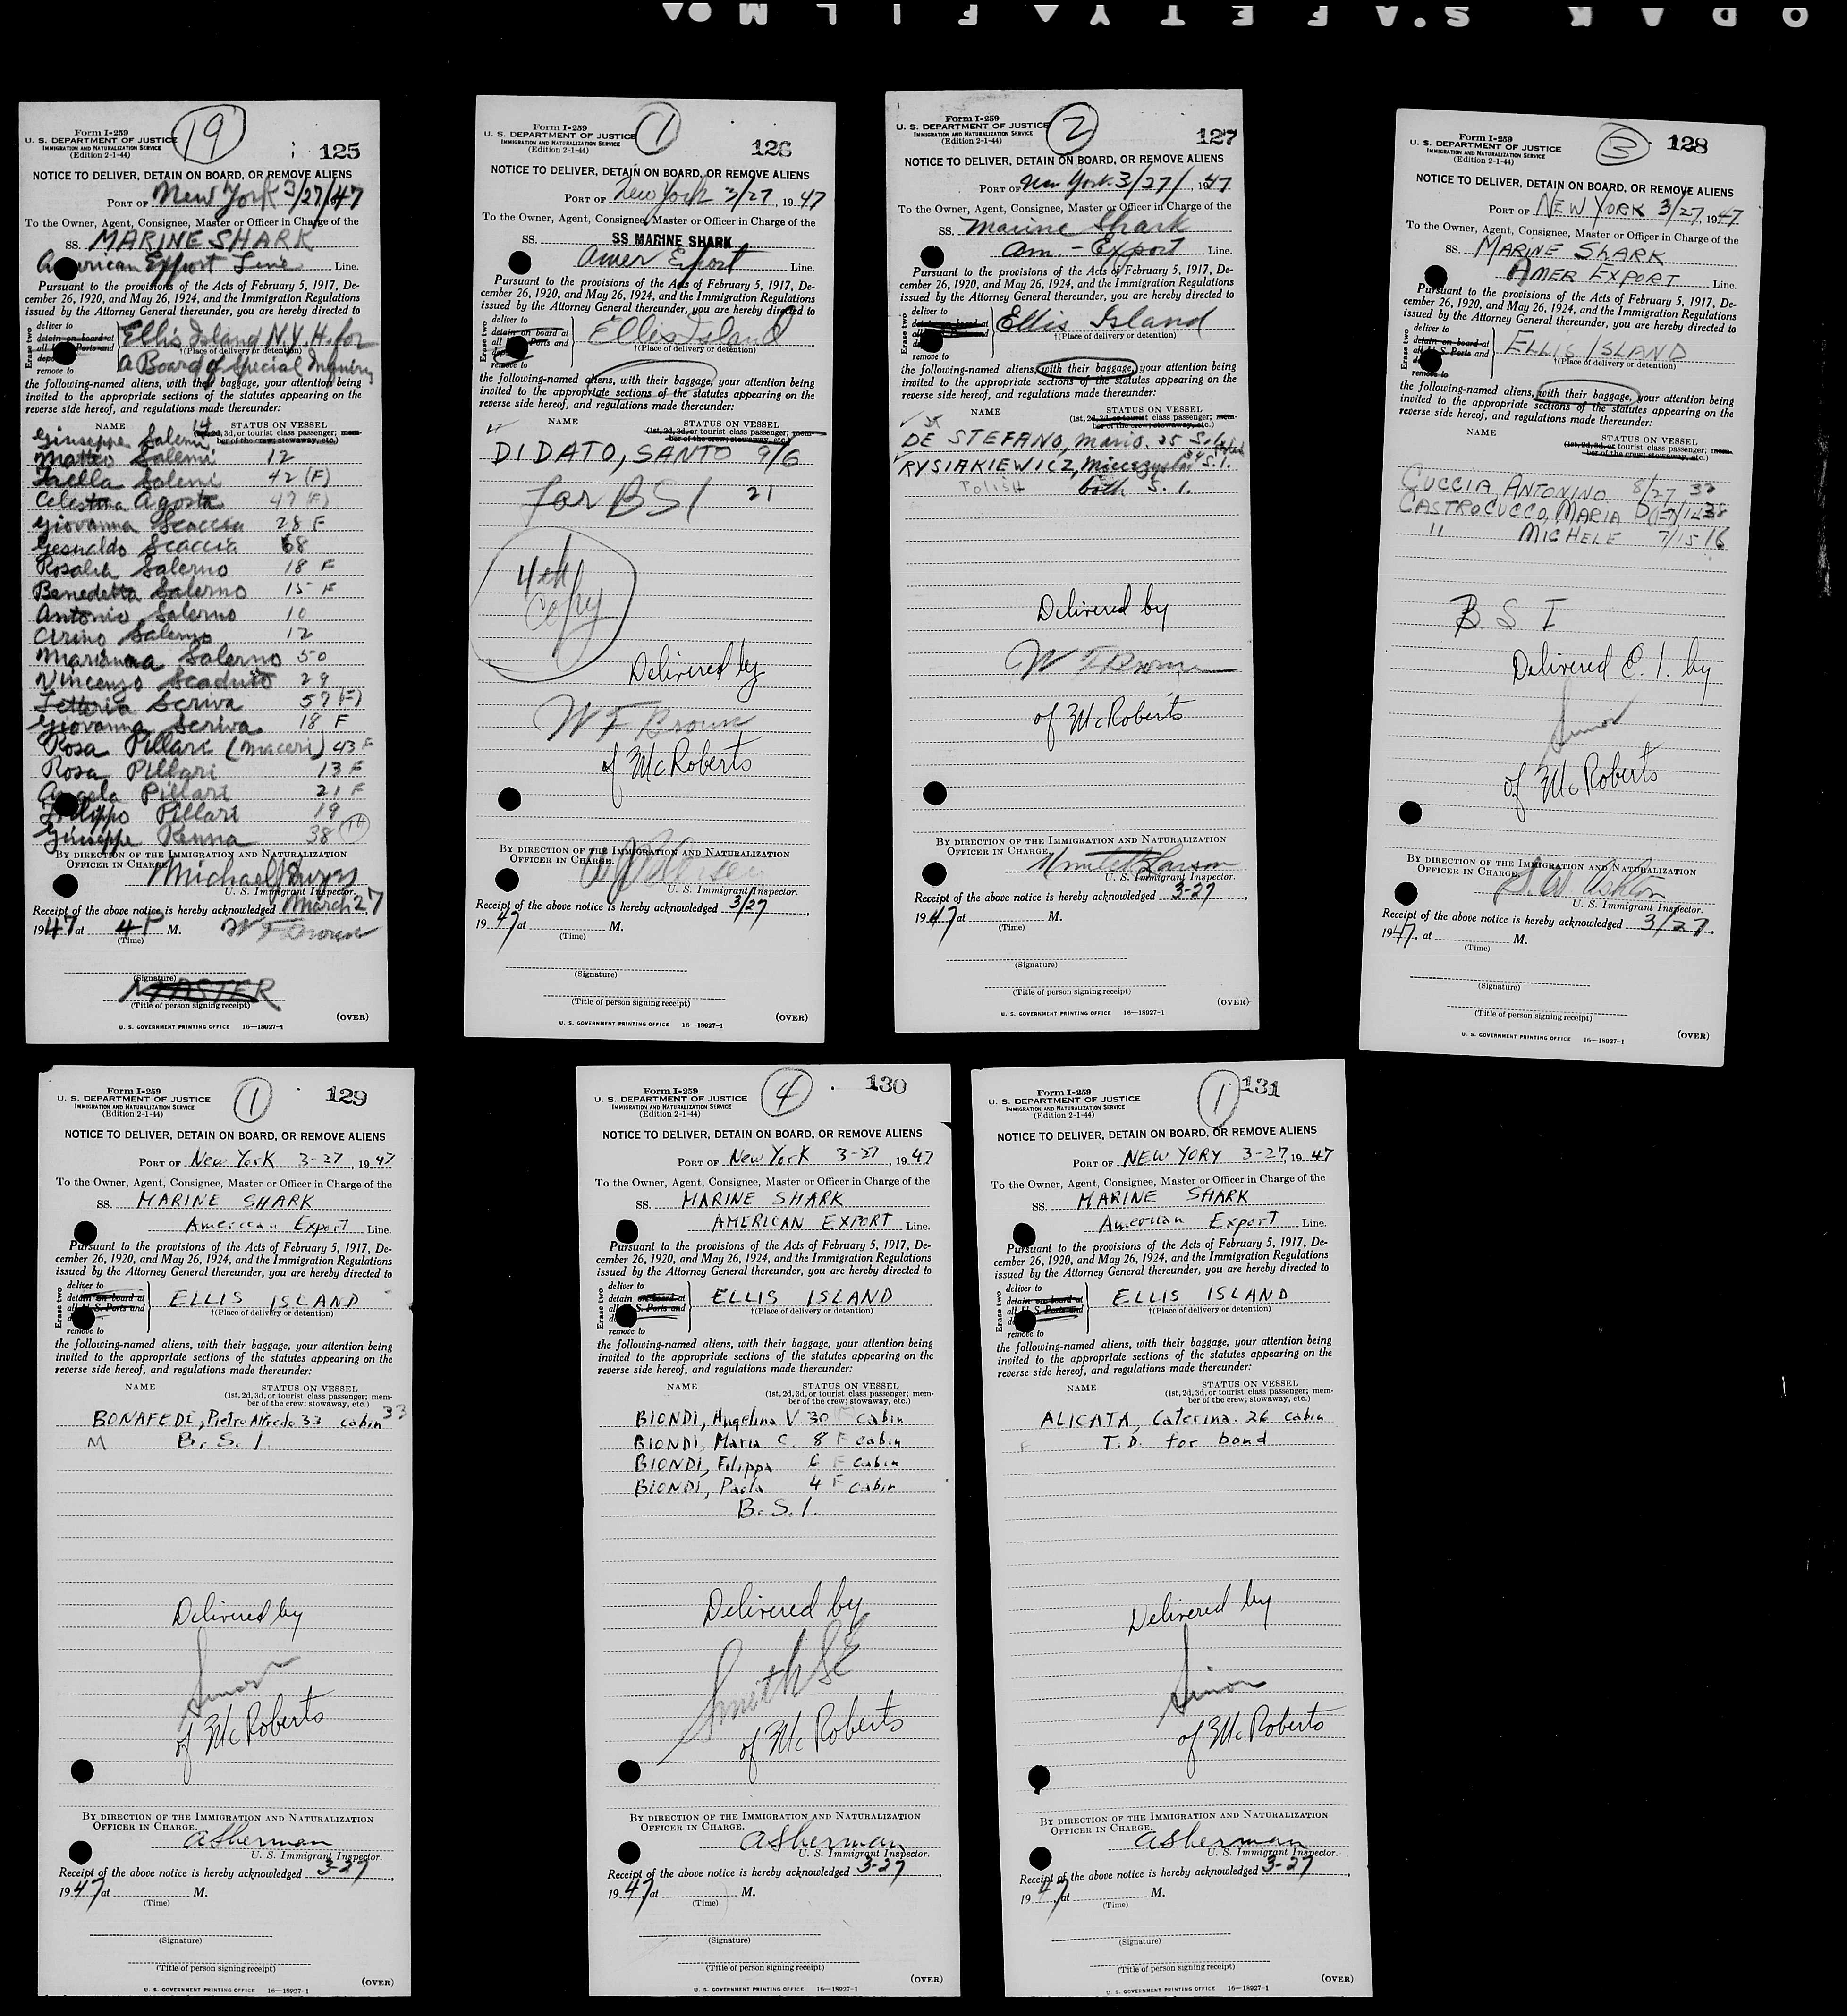 KODAK SAFETY FILM
Form I-259
19
U. S. DEPARTMENT OF JUSTICE
IMMIGRATION AND NATURALIZATION SERVICE
(Edition 2-1-44)
125
NOTICE TO DELIVER, DETAIN ON BOARD, OR REMOVE ALIENS
PORT OF New York 3/27/47
To the Owner, Agent, Consignee, Master or Officer in Charge of the
SS. MARINE SHARK
American Export Line Line.
Pursuant to the provisions of the Acts of February 5, 1917, De-
cember 26, 1920, and May 26, 1924, and the Immigration Regulations
issued by the Attorney General thereunder, you are hereby directed to
Erase two
deliver to
detain on board at
all U. S. Ports and
remove to
Ellis Island N.Y.H. for
†(Place of delivery or detention)
a Board of Special Inquiry
the following-named aliens, with their baggage, your attention being
invited to the appropriate sections of the statutes appearing on the
reverse side hereof, and regulations made thereunder:
NAME STATUS ON VESSEL
(1st, 2d, 3d, or tourist class passenger; mem-
ber of the crew; stowaway, etc.)
Giuseppe Salemi 14
Matteo Salemi 12
Salemi 42 (F)
Celestina Agosta 47 (F)
Giovanna Scaccia 28 F
Gesualdo Scaccia 68
Rosalia Salerno 18 F
Benedetta Salerno 15 F
Antonio Salerno 10
Salerno 12
Marianna Salerno 50
Vincenzo Scaduto 29
Scriva 57 (F)
Giovanna Scriva 18 F
Rosa Pillari (Maceri) 43 F
Rosa Pillari 13 F
Angela Pillari 21 F
Filippo Pillari 19
Giuseppe Penna 38
BY DIRECTION OF THE IMMIGRATION AND NATURALIZATION
OFFICER IN CHARGE.
Michael
U. S. Immigrant Inspector.
Receipt of the above notice is hereby acknowledged March 27
1947 at 4 P M. W F Brown
(Time)
(Signature)
MASTER
(Title of person signing receipt)
(OVER)
U. S. GOVERNMENT PRINTING OFFICE 16—18927-1
Form I-259
1
U. S. DEPARTMENT OF JUSTICE
IMMIGRATION AND NATURALIZATION SERVICE
(Edition 2-1-44)
126
NOTICE TO DELIVER, DETAIN ON BOARD, OR REMOVE ALIENS
PORT OF New York 3/27, 19 47
To the Owner, Agent, Consignee, Master or Officer in Charge of the
SS. SS MARINE SHARK
Amer Export Line.
Pursuant to the provisions of the Acts of February 5, 1917, De-
cember 26, 1920, and May 26, 1924, and the Immigration Regulations
issued by the Attorney General thereunder, you are hereby directed to
Erase two
deliver to
detain on board at
all U. S. Ports and
remove to
Ellis Island
†(Place of delivery or detention)
the following-named aliens, with their baggage, your attention being
invited to the appropriate sections of the statutes appearing on the
reverse side hereof, and regulations made thereunder:
NAME STATUS ON VESSEL
(1st, 2d, 3d, or tourist class passenger; mem-
ber of the crew; stowaway, etc.)
DI DATO, SANTO 9/6
for BSI 21
4th
Copy
Delivered by
W F Brown
of McRoberts
BY DIRECTION OF THE IMMIGRATION AND NATURALIZATION
OFFICER IN CHARGE.
U. S. Immigrant Inspector.
Receipt of the above notice is hereby acknowledged 3/27
1947 at M.
(Time)
(Signature)
(Title of person signing receipt)
(OVER)
U. S. GOVERNMENT PRINTING OFFICE 16—18927-1
Form I-259
2
U. S. DEPARTMENT OF JUSTICE
IMMIGRATION AND NATURALIZATION SERVICE
(Edition 2-1-44)
127
NOTICE TO DELIVER, DETAIN ON BOARD, OR REMOVE ALIENS
PORT OF New York 3/27/, 1947
To the Owner, Agent, Consignee, Master or Officer in Charge of the
SS. Marine Shark
Am. - Export Line.
Pursuant to the provisions of the Acts of February 5, 1917, De-
cember 26, 1920, and May 26, 1924, and the Immigration Regulations
issued by the Attorney General thereunder, you are hereby directed to
Erase two
deliver to
detain on board at
remove to
Ellis Island
†(Place of delivery or detention)
the following-named aliens, with their baggage, your attention being
invited to the appropriate sections of the statutes appearing on the
reverse side hereof, and regulations made thereunder:
NAME STATUS ON VESSEL
(1st, 2d, 3d, or tourist class passenger; mem-
ber of the crew; stowaway, etc.)
DE STEFANO, Mario. 25 S.I.
RYSIAKIEWICZ, Mieczyslaw 34 S.I.
Polish both S. I.
Delivered by
W F Brown
of McRoberts
BY DIRECTION OF THE IMMIGRATION AND NATURALIZATION
OFFICER IN CHARGE.
Larson
U. S. Immigrant Inspector.
Receipt of the above notice is hereby acknowledged 3-27
1947 at M.
(Time)
(Signature)
(Title of person signing receipt)
(OVER)
U. S. GOVERNMENT PRINTING OFFICE 16—18927-1
Form I-259
3
U. S. DEPARTMENT OF JUSTICE
IMMIGRATION AND NATURALIZATION SERVICE
(Edition 2-1-44)
128
NOTICE TO DELIVER, DETAIN ON BOARD, OR REMOVE ALIENS
PORT OF NEW YORK 3/27, 1947
To the Owner, Agent, Consignee, Master or Officer in Charge of the
SS. MARINE SHARK
AMER EXPORT Line.
Pursuant to the provisions of the Acts of February 5, 1917, De-
cember 26, 1920, and May 26, 1924, and the Immigration Regulations
issued by the Attorney General thereunder, you are hereby directed to
Erase two
deliver to
detain on board at
all U. S. Ports and
remove to
ELLIS ISLAND
†(Place of delivery or detention)
the following-named aliens, with their baggage, your attention being
invited to the appropriate sections of the statutes appearing on the
reverse side hereof, and regulations made thereunder:
NAME STATUS ON VESSEL
(1st, 2d, 3d, or tourist class passenger; mem-
ber of the crew; stowaway, etc.)
CUCCIA ANTONINO 8/27
CASTROCUCCO, MARIA 38
" MICHELE 7/15 16
B S I
Delivered E. I. by
Simon
of McRoberts
BY DIRECTION OF THE IMMIGRATION AND NATURALIZATION
OFFICER IN CHARGE.
S. W. Ashton
U. S. Immigrant Inspector.
Receipt of the above notice is hereby acknowledged 3/27
1947, at M.
(Time)
(Signature)
(Title of person signing receipt)
(OVER)
U. S. GOVERNMENT PRINTING OFFICE 16—18927-1
Form I-259
1
U. S. DEPARTMENT OF JUSTICE
IMMIGRATION AND NATURALIZATION SERVICE
(Edition 2-1-44)
129
NOTICE TO DELIVER, DETAIN ON BOARD, OR REMOVE ALIENS
PORT OF New York 3-27, 1947
To the Owner, Agent, Consignee, Master or Officer in Charge of the
SS. MARINE SHARK
American Export Line.
Pursuant to the provisions of the Acts of February 5, 1917, De-
cember 26, 1920, and May 26, 1924, and the Immigration Regulations
issued by the Attorney General thereunder, you are hereby directed to
Erase two
deliver to
detain on board at
all U. S. Ports and
remove to
ELLIS ISLAND
†(Place of delivery or detention)
the following-named aliens, with their baggage, your attention being
invited to the appropriate sections of the statutes appearing on the
reverse side hereof, and regulations made thereunder:
NAME STATUS ON VESSEL
(1st, 2d, 3d, or tourist class passenger; mem-
ber of the crew; stowaway, etc.)
BONAFEDE, Pietro Alfredo 33 cabin 33
M B. S. I.
Delivered by
Simon
of McRoberts
BY DIRECTION OF THE IMMIGRATION AND NATURALIZATION
OFFICER IN CHARGE.
A Sherman
U. S. Immigrant Inspector.
Receipt of the above notice is hereby acknowledged 3-27
1947 at M.
(Time)
(Signature)
(Title of person signing receipt)
(OVER)
U. S. GOVERNMENT PRINTING OFFICE 16—18927-1
Form I-259
4
U. S. DEPARTMENT OF JUSTICE
IMMIGRATION AND NATURALIZATION SERVICE
(Edition 2-1-44)
130
NOTICE TO DELIVER, DETAIN ON BOARD, OR REMOVE ALIENS
PORT OF New York 3-27, 1947
To the Owner, Agent, Consignee, Master or Officer in Charge of the
SS. MARINE SHARK
AMERICAN EXPORT Line.
Pursuant to the provisions of the Acts of February 5, 1917, De-
cember 26, 1920, and May 26, 1924, and the Immigration Regulations
issued by the Attorney General thereunder, you are hereby directed to
Erase two
deliver to
detain on board at
all U. S. Ports and
remove to
ELLIS ISLAND
†(Place of delivery or detention)
the following-named aliens, with their baggage, your attention being
invited to the appropriate sections of the statutes appearing on the
reverse side hereof, and regulations made thereunder:
NAME STATUS ON VESSEL
(1st, 2d, 3d, or tourist class passenger; mem-
ber of the crew; stowaway, etc.)
BIONDI, Angelina V. 30 cabin
BIONDI, Maria C. 8 F cabin
BIONDI, Filippa 6 F cabin
BIONDI, Paola 4 F cabin
B. S. I.
Delivered by
Smith SE
of McRoberts
BY DIRECTION OF THE IMMIGRATION AND NATURALIZATION
OFFICER IN CHARGE.
A Sherman
U. S. Immigrant Inspector.
Receipt of the above notice is hereby acknowledged 3-27
1947, at M.
(Time)
(Signature)
(Title of person signing receipt)
(OVER)
U. S. GOVERNMENT PRINTING OFFICE 16—18927-1
Form I-259
1
U. S. DEPARTMENT OF JUSTICE
IMMIGRATION AND NATURALIZATION SERVICE
(Edition 2-1-44)
131
NOTICE TO DELIVER, DETAIN ON BOARD, OR REMOVE ALIENS
PORT OF NEW YORY 3-27, 1947
To the Owner, Agent, Consignee, Master or Officer in Charge of the
SS. MARINE SHARK
American Export Line.
Pursuant to the provisions of the Acts of February 5, 1917, De-
cember 26, 1920, and May 26, 1924, and the Immigration Regulations
issued by the Attorney General thereunder, you are hereby directed to
Erase two
deliver to
detain on board at
all U. S. Ports and
remove to
ELLIS ISLAND
†(Place of delivery or detention)
the following-named aliens, with their baggage, your attention being
invited to the appropriate sections of the statutes appearing on the
reverse side hereof, and regulations made thereunder:
NAME STATUS ON VESSEL
(1st, 2d, 3d, or tourist class passenger; mem-
ber of the crew; stowaway, etc.)
ALICATA, Caterina. 26 cabin
F T.D. for bond
Delivered by
Simon
of McRoberts
BY DIRECTION OF THE IMMIGRATION AND NATURALIZATION
OFFICER IN CHARGE.
A Sherman
U. S. Immigrant Inspector.
Receipt of the above notice is hereby acknowledged 3-27
1947, at M.
(Time)
(Signature)
(Title of person signing receipt)
(OVER)
U. S. GOVERNMENT PRINTING OFFICE 16—18927-1